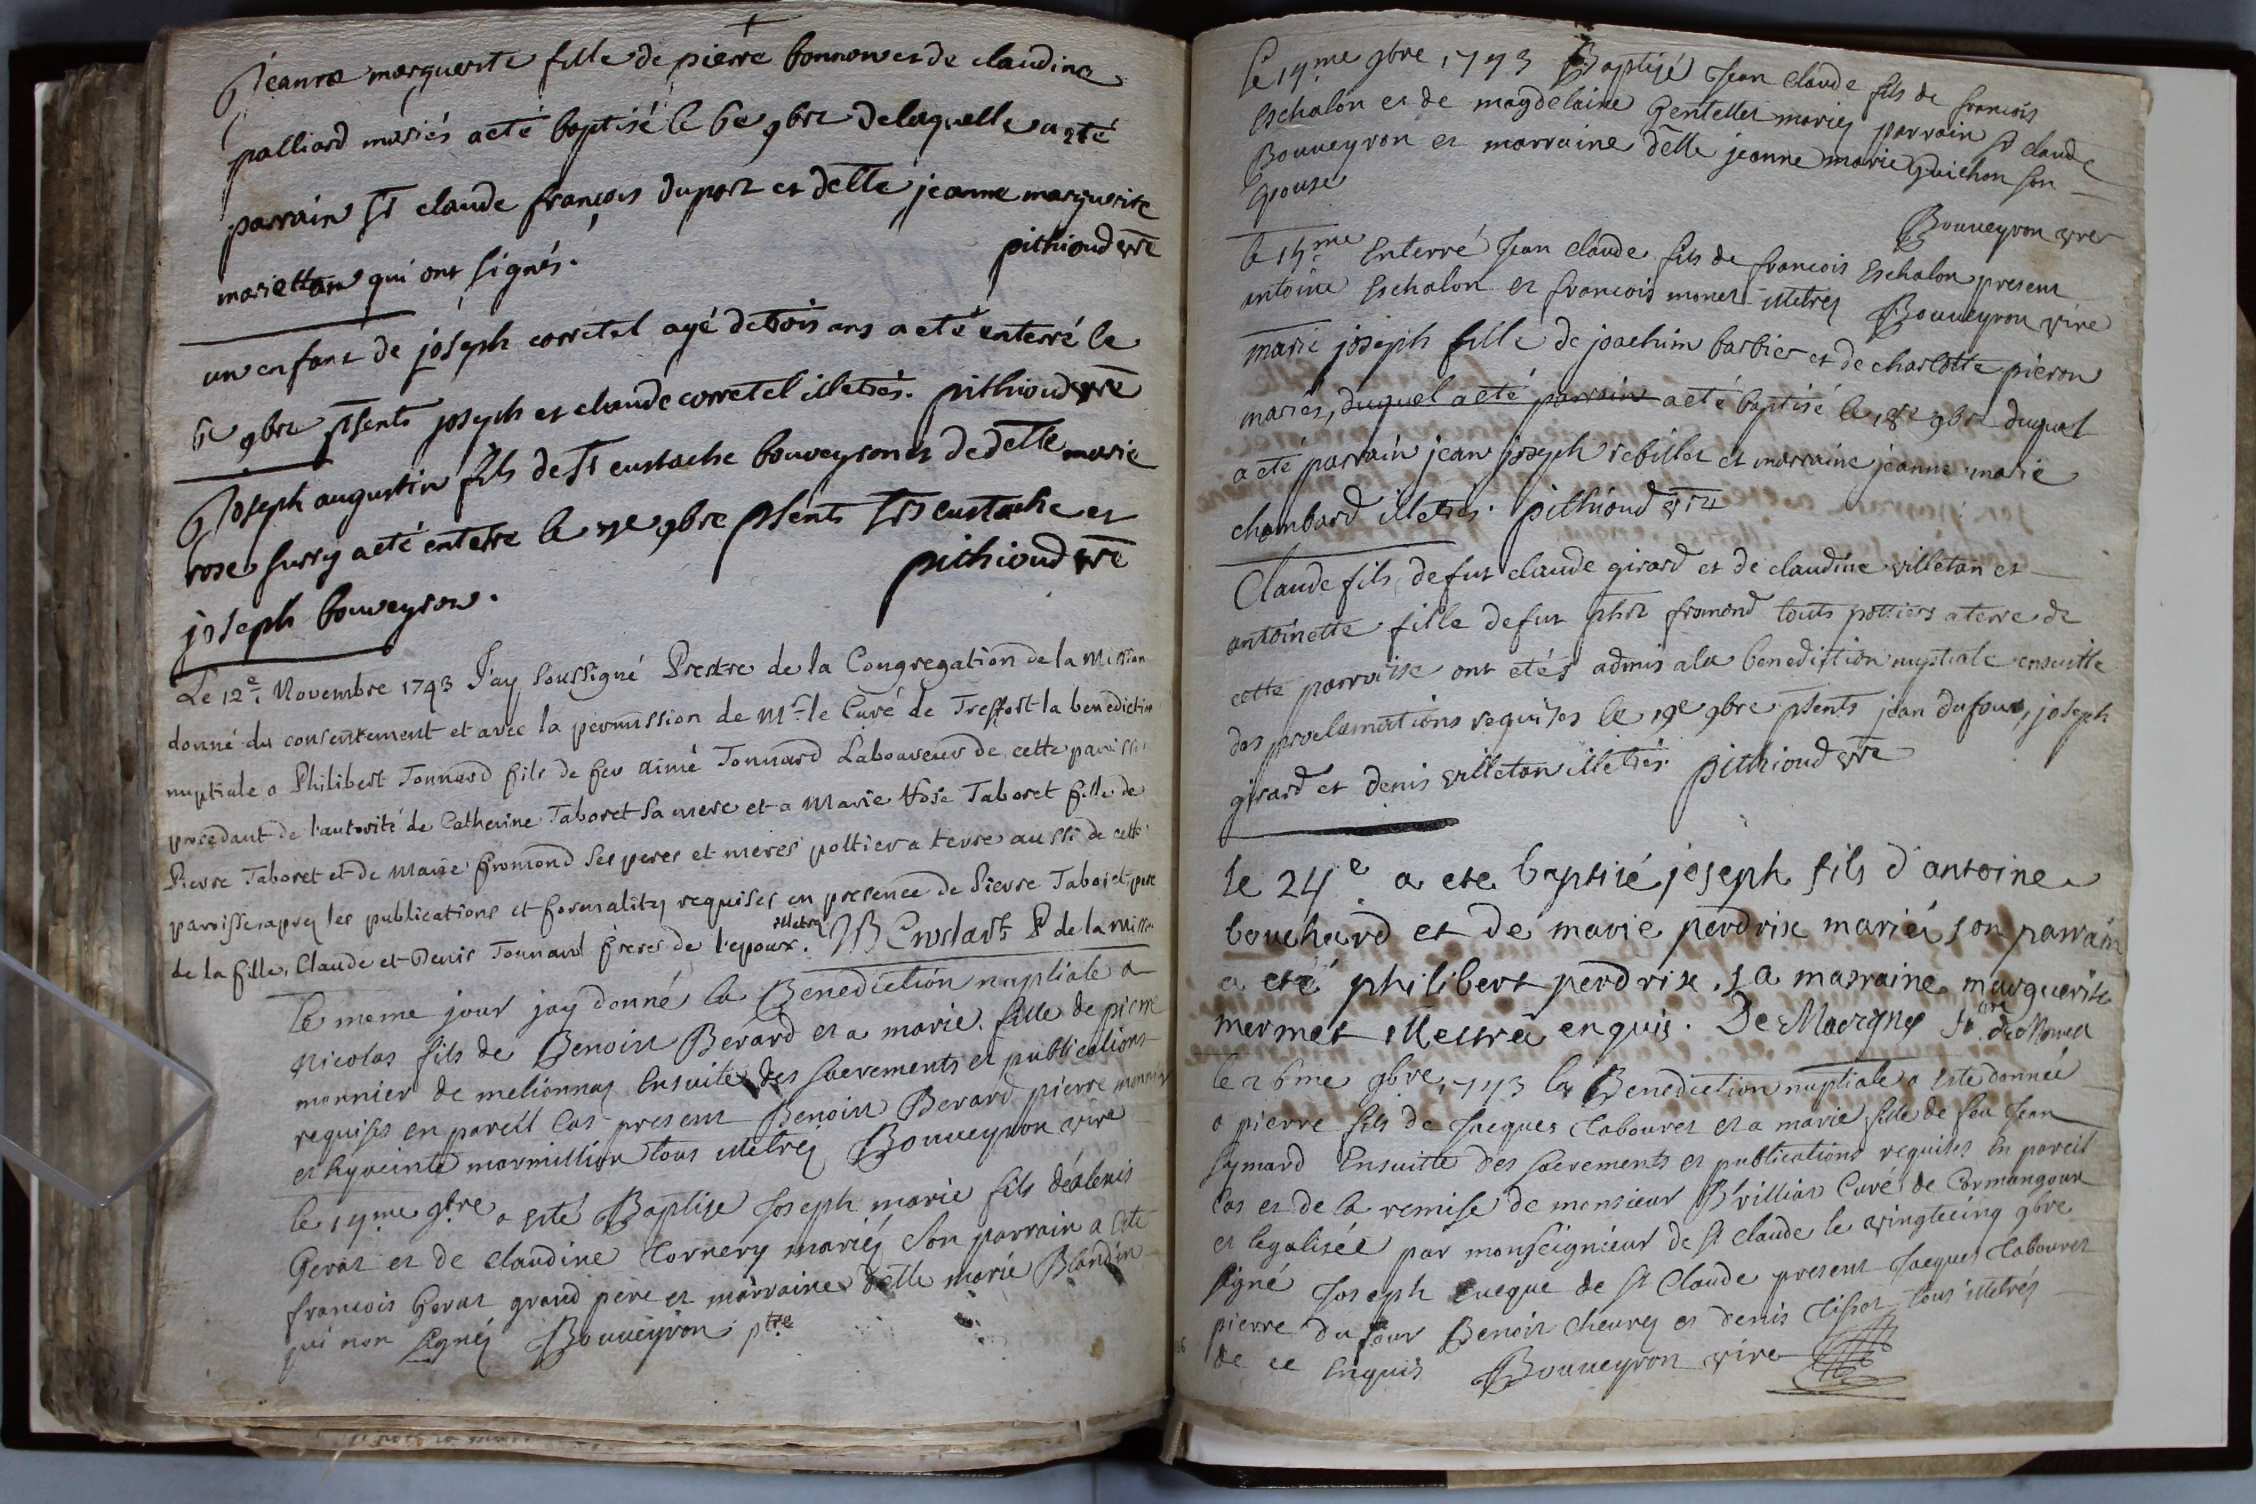 jeanne marguerite fille de pierre bonnon et de claudine
palliard mariés a eté baptisé le 6e 9bre de laquelle a eté
parrain sr claude françois duport et delle jeanne marguerite
mariettan qui ont signés. pithioud vre
un enfant de joseph corretel agé de trois ans a eté enterré le
6e 9bre psents joseph et claude corretel illetrés. pithioud vre
joseph augustin fils de sr eustache bouveyron et de delle marie
rose surry a eté enterre le 7e 9bre psents srs eustache et
joseph bouveyron. pithioud vre
Le 12e. Novembre 1743 J'ay soussigné Prestre de la Congregation de la Mission
donné du consentement et avec la permission de Mr. le Curé de Treffort la benediction
nuptiale a Philibert Tonnard fils de feu aimé Tonnard Laboureur de cette paroisse
procedant de l'autorité de Catherine Taboret sa mere et a Marie Rose Taboret fille de
Pierre Taboret et de Marie fromond ses peres et meres pottier a terre aussi de cette
paroisse apres les publications et formalitez requises en presence de Pierre Taboret pere
de la fille, Claude et Denis Tonnard freres de l'epoux. illetrez P de la Miss
le meme jour jay donné la Benediction nuptiale a
Nicolas fils de Benoist Berard et a marie fille de pierre
monnier de melionnas Ensuite des sacrements et publications
requises en pareil cas present Benoist Berard pierre monnier
et hyacinte marmillion tous illetrez Bouveyron vire
le 14me 9bre a esté Baptise Joseph marie fils de
Gerat et de Claudine Cornery mariéz son parrain a esté
francois Gerat grand pere et marraine delle marie Blandin
qui non signéz Bouveyron ptre
le 14me 9bre 1743 Baptisé Jean Claude fils de francois
Eschalon et de magdelaine Gentelles mariez parrain sr claude
Bouveyron et marraine delle jeanne marie Guichon son
Epouse Bouveyron vire
le 15me Enterré Jean Claude fils de francois Eschalon present
antoine Eschalon et francois monet illetrez Bouveyron vire
marie joseph fille de joachim barbier et de charlotte pieron
mariés, duquel a eté parrain a eté baptisé le 18e 9bre duquel
a eté parrain jean joseph rebillet et marraine jeanne marie
chambard illetrés. pithioud vre
Claude fils de fut claude girard et de claudine villetan et
antoinette fille de fut phir fromond touts pottiers a terre de
cette parroisse ont etés admis a la benediction nuptiale ensuitte
des proclamations requises le 19e 9bre psents jean dufour, joseph
girard et denis villetan illetrés. pithioud vre
le 24e a ete baptisé joseph fils d'antoine
bouchard et de marie perdrix mariés son parrain
a eté philibert perdrix, sa marraine marguerite
mermet illettré enquis.
le 26me 9bre 1743 la Benediction nuptiale a esté donnée
a pierre fils de Jacques Cabouret et a marie fille de feu Jean
symard Ensuitte des sacrements et publications requises En pareil
cas et de la remise de monsieur Brilliat Curé de Cormangoux
et legalisée par monseigneur de st claude le vingtcinq 9bre
signé Joseph Eveque de st Claude present Jacques Cabouret
pierre dufour Benoit Chevrez et denis Tissot tous illetrés
de ce Enquis Bouveyron vire